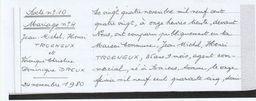 Acte n° 10
Mariage n° 4
Jean-Michel, Henri
TROGNEUX
et
Véronique Christine
Dominique
20 novembre 1980
Le vingt quatre novembre mil neuf cent
quatre vingt, à onze heures trente, devant
Nous, ont comparu publiquement en la
Maison Commune, Jean-Michel, Henri
TROGNEUX, agent com-
mercial, né à Amiens, Somme, le onze
mil neuf cent quarante cinq,